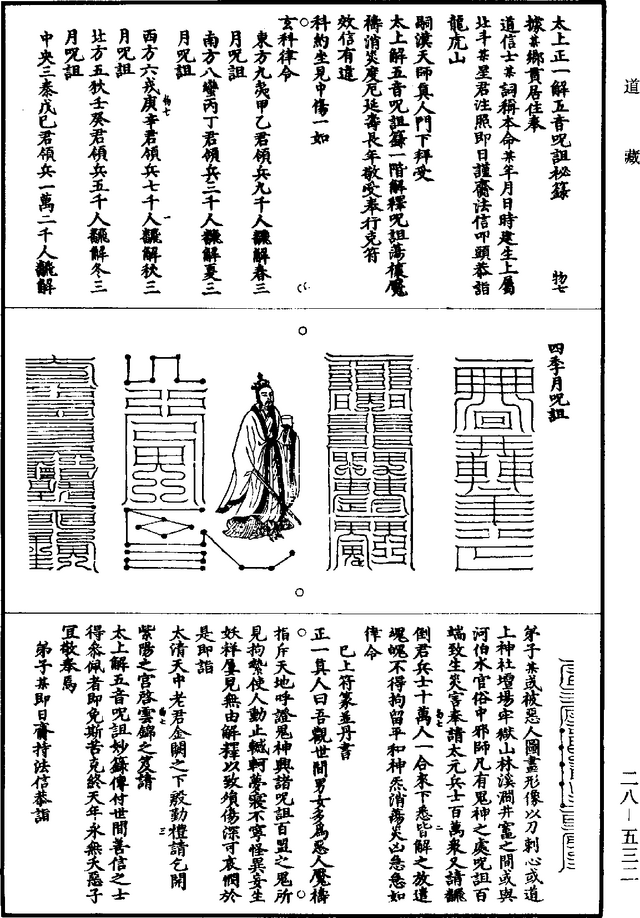 道藏
太上正一解五音呪詛秘籙
物七
據某鄉貫居住奉
道信士某詞稱本命某年月日時建生上屬
北斗某星君注照即日謹齎法信叩頭恭詣
龍虎山
嗣漢天師真人門下拜受
太上解五音呪詛籙一階解釋呪詛蕩禳魘
禱消災度厄延壽長年敬受奉行克符
效信有違
科約生見中傷一如
玄科律令
東方九夷甲乙君領兵九千人飜解春三
月呪詛
南方八蠻丙丁君領兵三千人飜解夏三
月呪詛
西方六戎庚辛君領兵七千人飜解秋三
物七
一
月呪詛
北方五狄壬癸君領兵五千人飜解冬三
月呪詛
中央三秦戊巳君領兵一萬二千人飜解
四季月呪詛
弟子某或被惡人圖畫形像以刀刺心或道
上神社壇場牢獄山林溪澗井竈之間或與
河伯水官俗中邪師凡有鬼神之處呪詛百
端致生災害奉請太元兵士百萬衆又請飜
倒君兵士十萬人一合來下悉皆解之放遣
物七
二
魂魄不得拘留平和神炁消蕩災凶急急如
律令
巳上符篆並丹書
正一真人曰吾觀世間男女多爲惡人魘禱
指斥天地呼證鬼神興諸呪詛百盟之鬼所
見拘縶使人動止轗軻夢寐不寧怪異妄生
妖祥屢見無由解釋以致煩傷深可哀憫於
是即詣
太清天中老君金闕之下殷勤禮請乞開
物七
三
紫陽之宮啓雲錦之笈請
太上解五音呪詛妙籙傳付世間善信之士
得叅佩者即免斯苦克終天年永無夭惡子
宜敬奉焉
弟子某即日齎持法信恭詣
二八-五三二